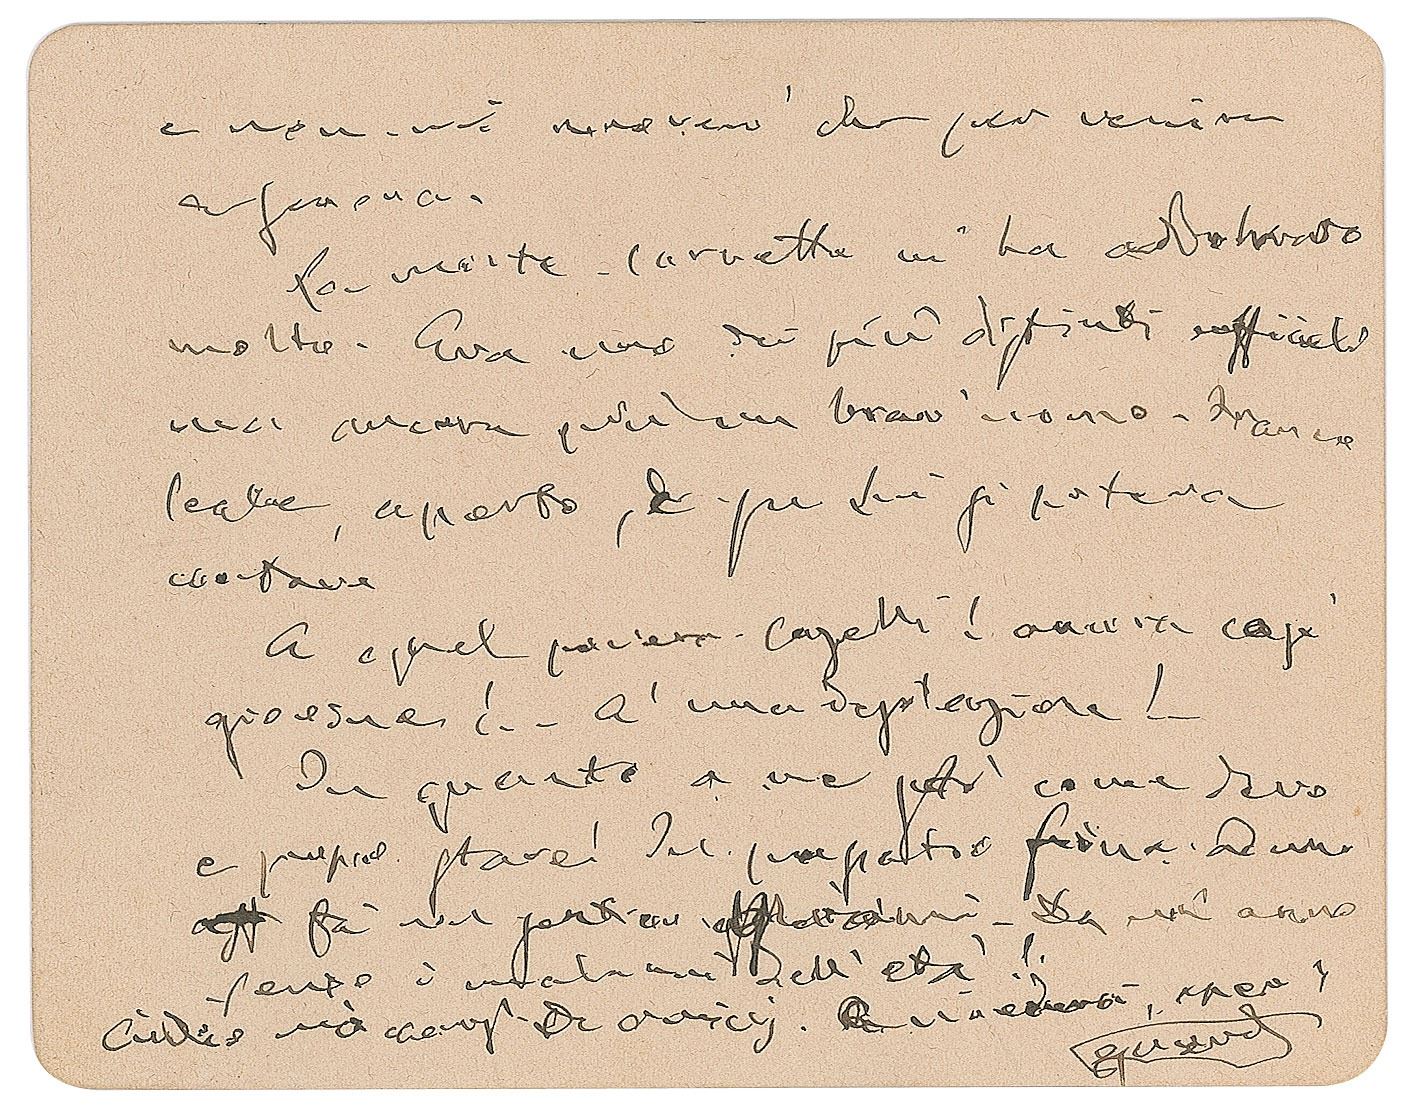 e non mi moverò che per venire
a Genova.
La morte Carnetta m'ha addolorato
molto. Era uno dei più distinti ufficiali
ma ancora più un brav'uomo. Franco
leale, aperto, e su lui si poteva
contare
A quel povero Casetti! ancora così
giovane!.. È una desolazione!
In quanto a me sto come devo
e posso stare! In
fà mi sentivo Da un anno
sento i malanni dell'età!!
mò Di amici. A rivederci, spero!
GVerdi